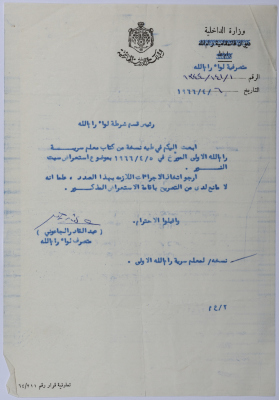 وزارة الداخلية
متصرفية لواء رام الله
الرقم
التاريخ ٦/٤/١٩٦٦
رئيس قسم شرطة لواء رام الله
ابعث اليكم في طيه نسخة من كتاب معلم سرية
رام الله الاولى المؤرخ في ١٩٦٦/٤/٥ بموضوع استعراض مبيت
ارجو اتخاذ الاجراءات اللازمة بهذا الصدد . علما انه
لا مانع لدى من التصريح باقامة الاستعراض المذكور .
واقبلوا الاحترام ،
( عبد القادر الجاعوني )
متصرف لواء رام الله
نسخة/ لمعلم سرية رام الله الاولى .
تعاونية قرار رقم ٦٤/٢١١